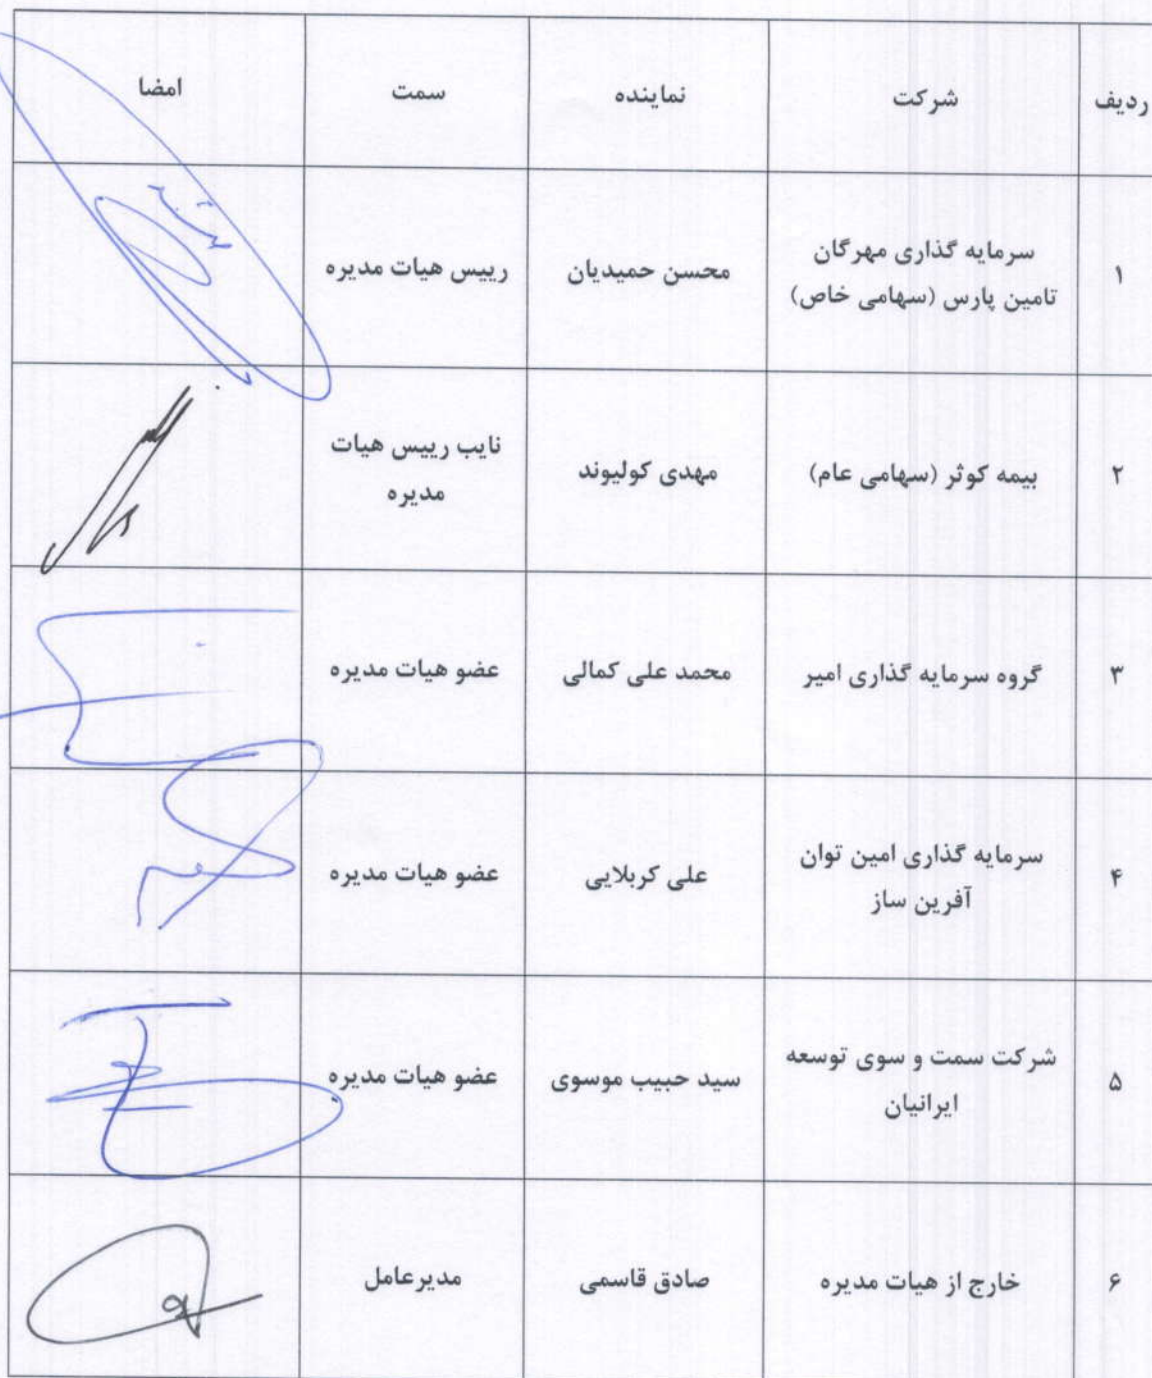 ردیف شرکت نماینده سمت امضا
۱ سرمایه گذاری مهرگان تامین پارس (سهامی خاص) محسن حمیدیان رییس هیات مدیره
۲ بیمه کوثر (سهامی عام) مهدی کولیوند نایب رییس هیات مدیره
۳ گروه سرمایه گذاری امیر محمد علی کمالی عضو هیات مدیره
۴ سرمایه گذاری امین توان آفرین ساز علی کربلایی عضو هیات مدیره
۵ شرکت سمت و سوی توسعه ایرانیان سید حبیب موسوی عضو هیات مدیره
۶ خارج از هیات مدیره صادق قاسمی مدیرعامل